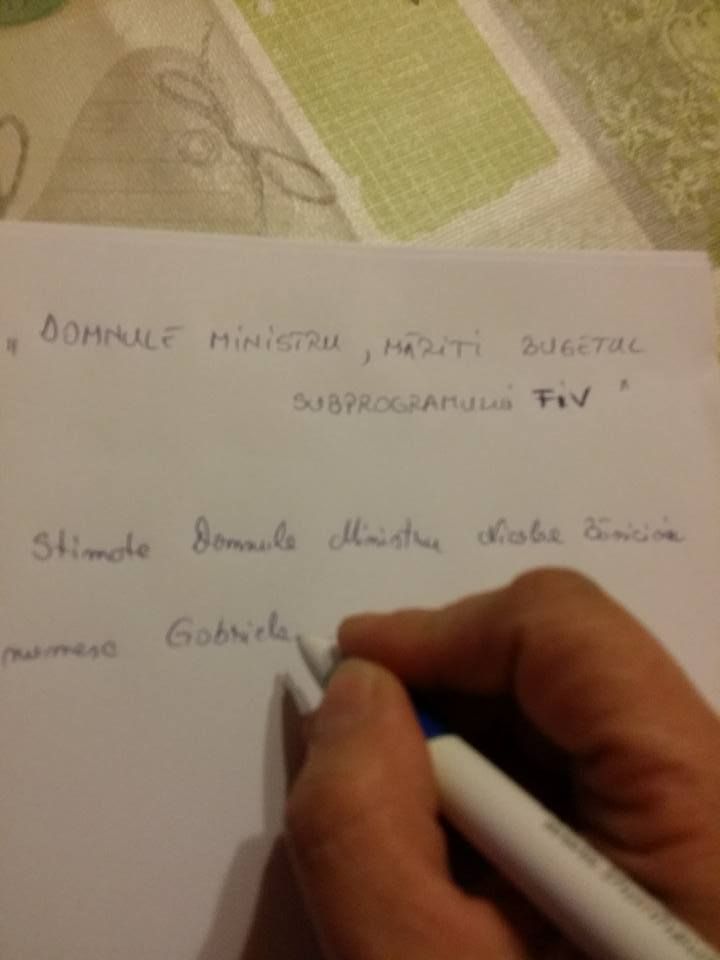 "DOMNULE MINISTRU, MĂRITI BUGETUL
SUBPROGRAMULUI FIV"
Stimate Domnule Ministru Nicolae Bănicioiu
numesc Gabriela